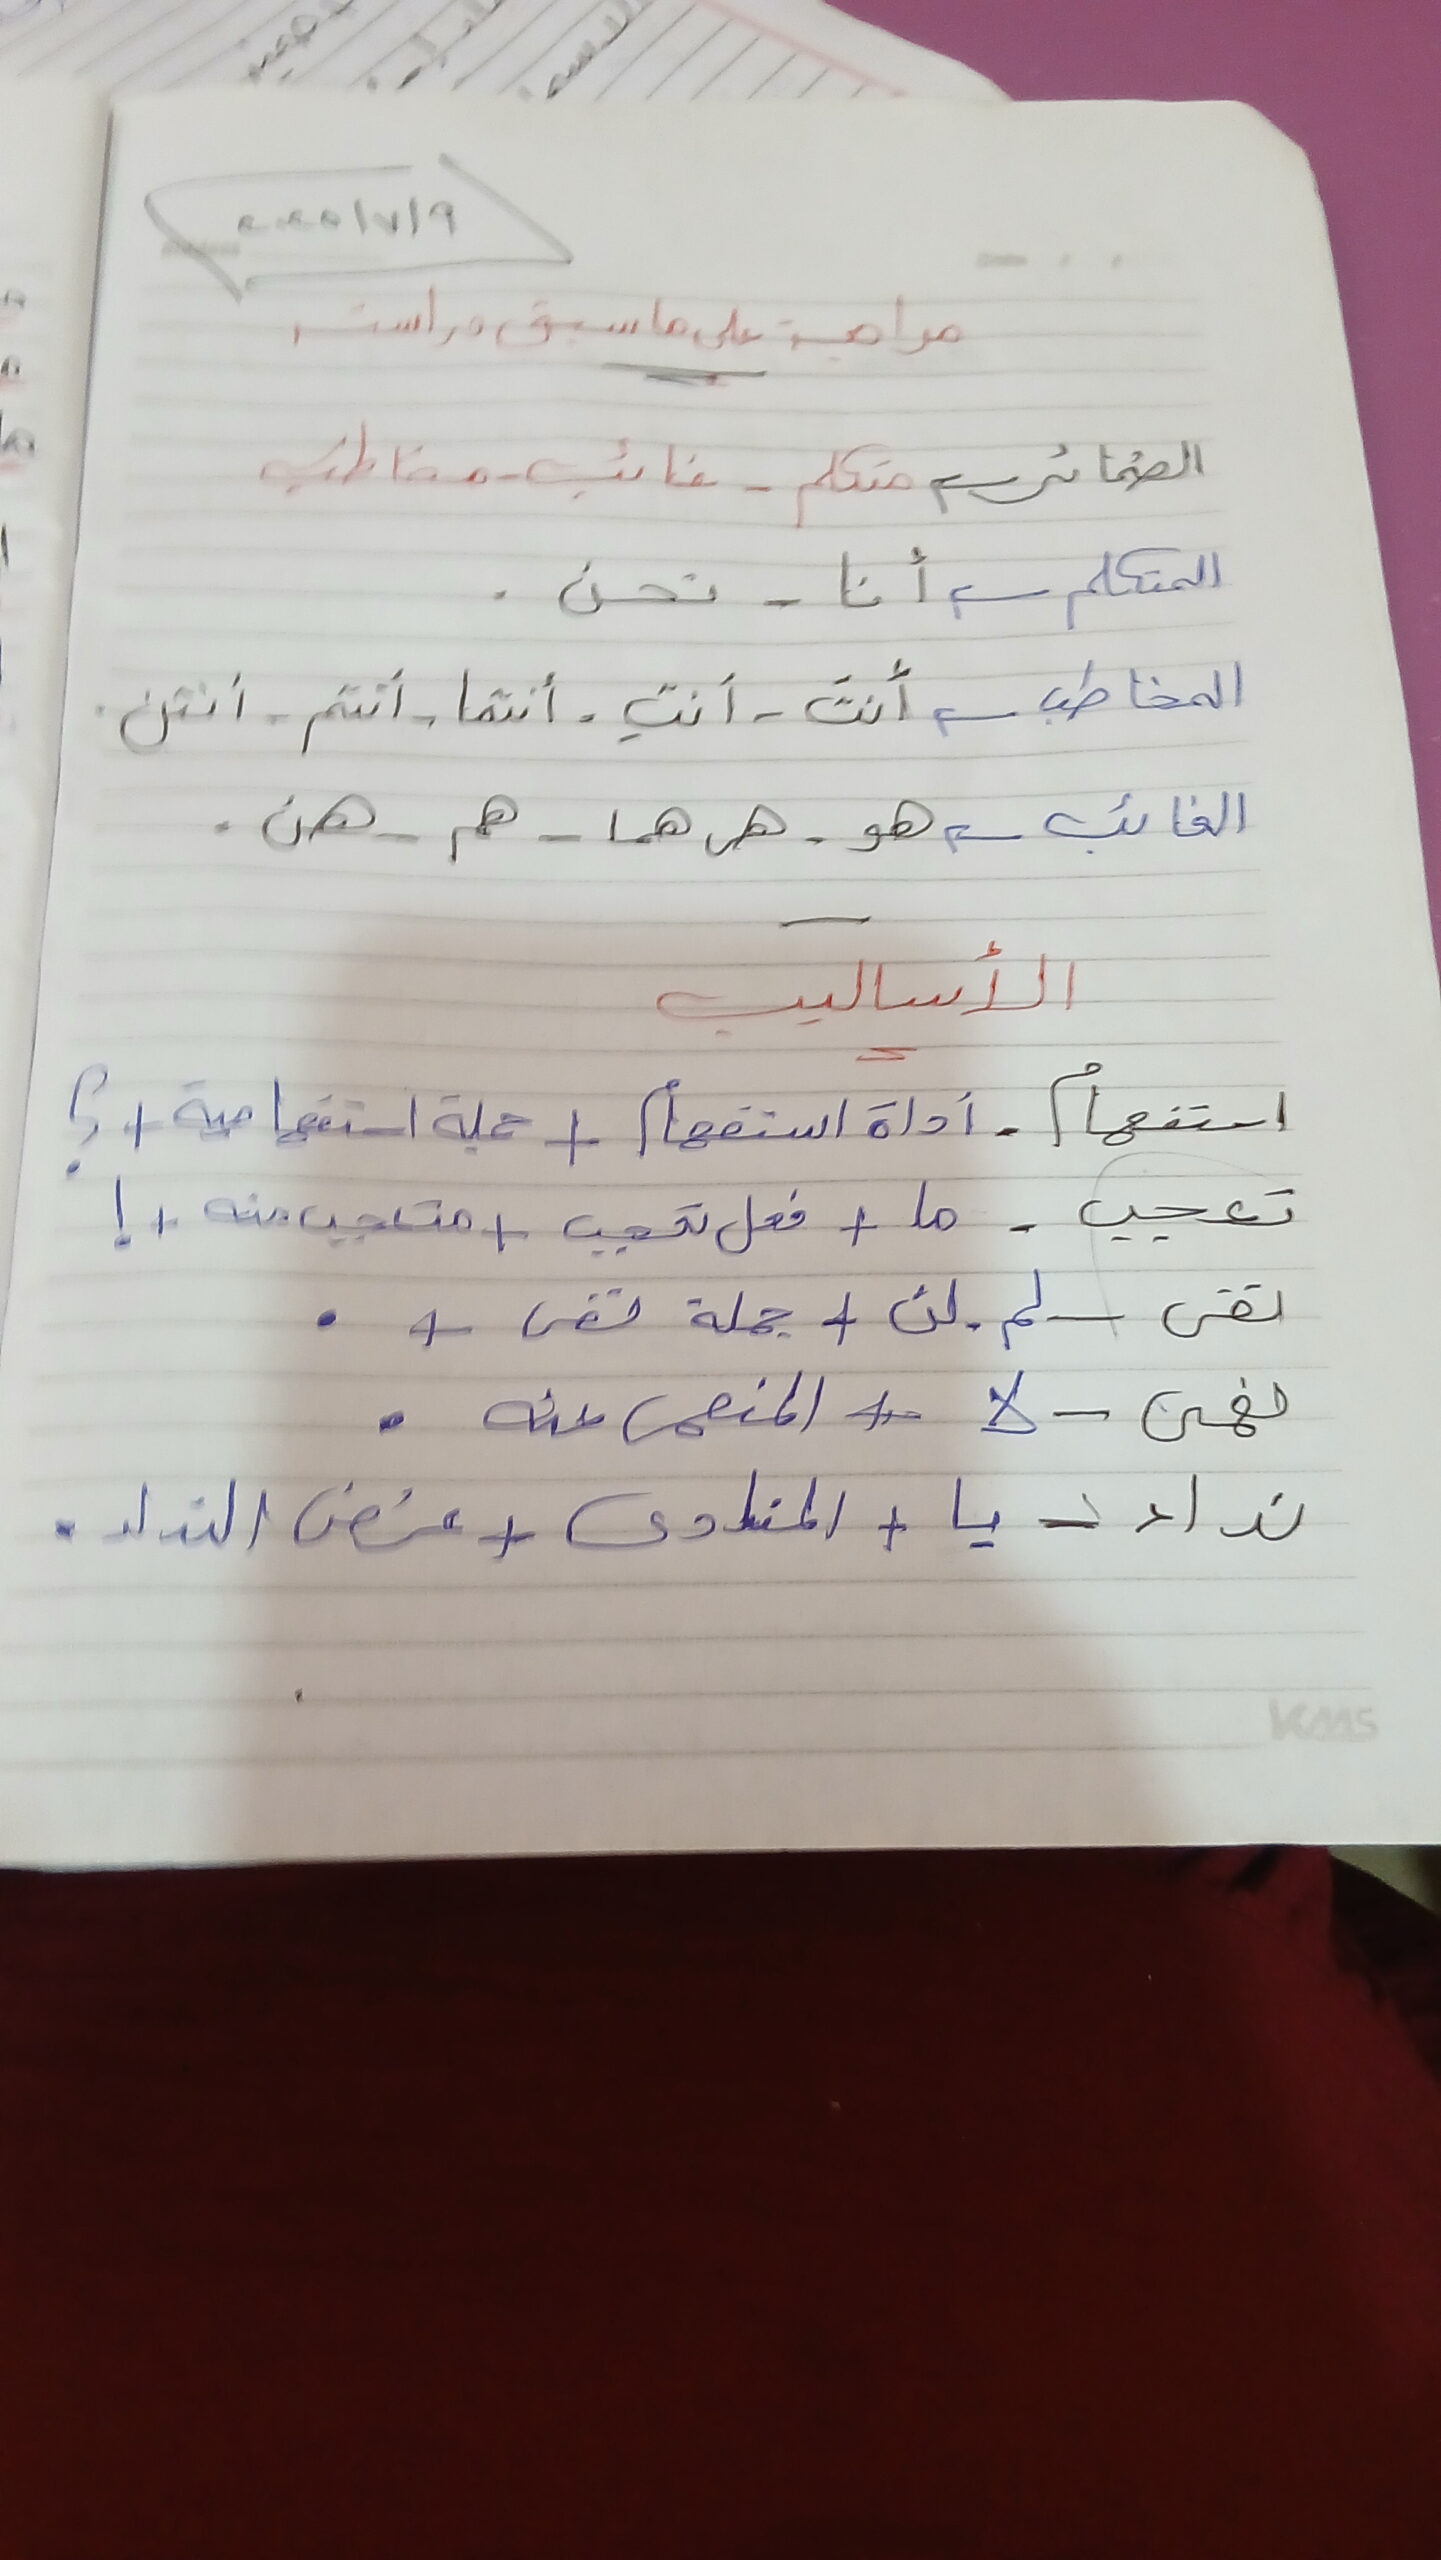 ٢٠٢٥/٧/٩
مراجعة على ما سبق دراسته
الضمائر ← متكلم - غائب - مخاطب
المتكلم ← أنا - نحن .
المخاطب ← أنتَ - أنتِ - أنتما - أنتم - أنتن .
الغائب ← هو - هى هما - هم - هن .
الأساليب
استفهام - أداة استفهام + جملة استفهامية + ؟
تعجب - ما + فعل تعجب + متعجب منه + !
نفى - لم - لن + جملة نفى + .
نهى - لا + المنهى عنه .
نداء - يا + المنادى + غرض النداء .